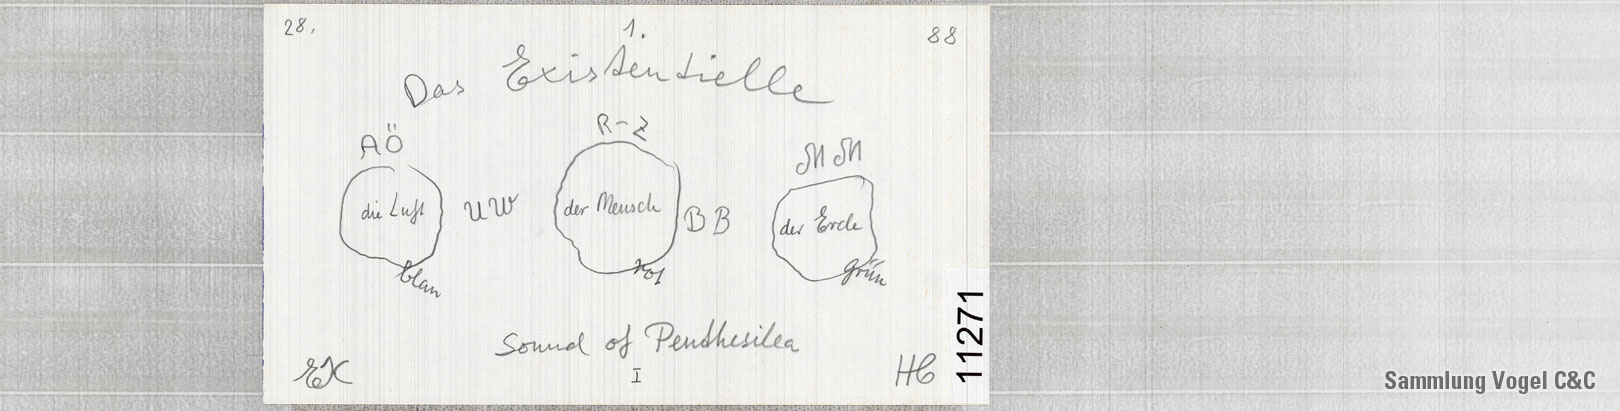 28. 1. 88
Das Existentielle
AÖ R-Z MM
die Luft UW der Mensch BB der Erde
blau rot grün
Sound of Penthesilea
EK I HC
11271
Sammlung Vogel C&C